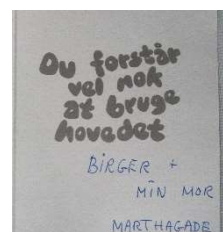 Du forstår
vel nok
at bruge
hovedet
BIRGER +
MIN MOR
MARTHAGADE